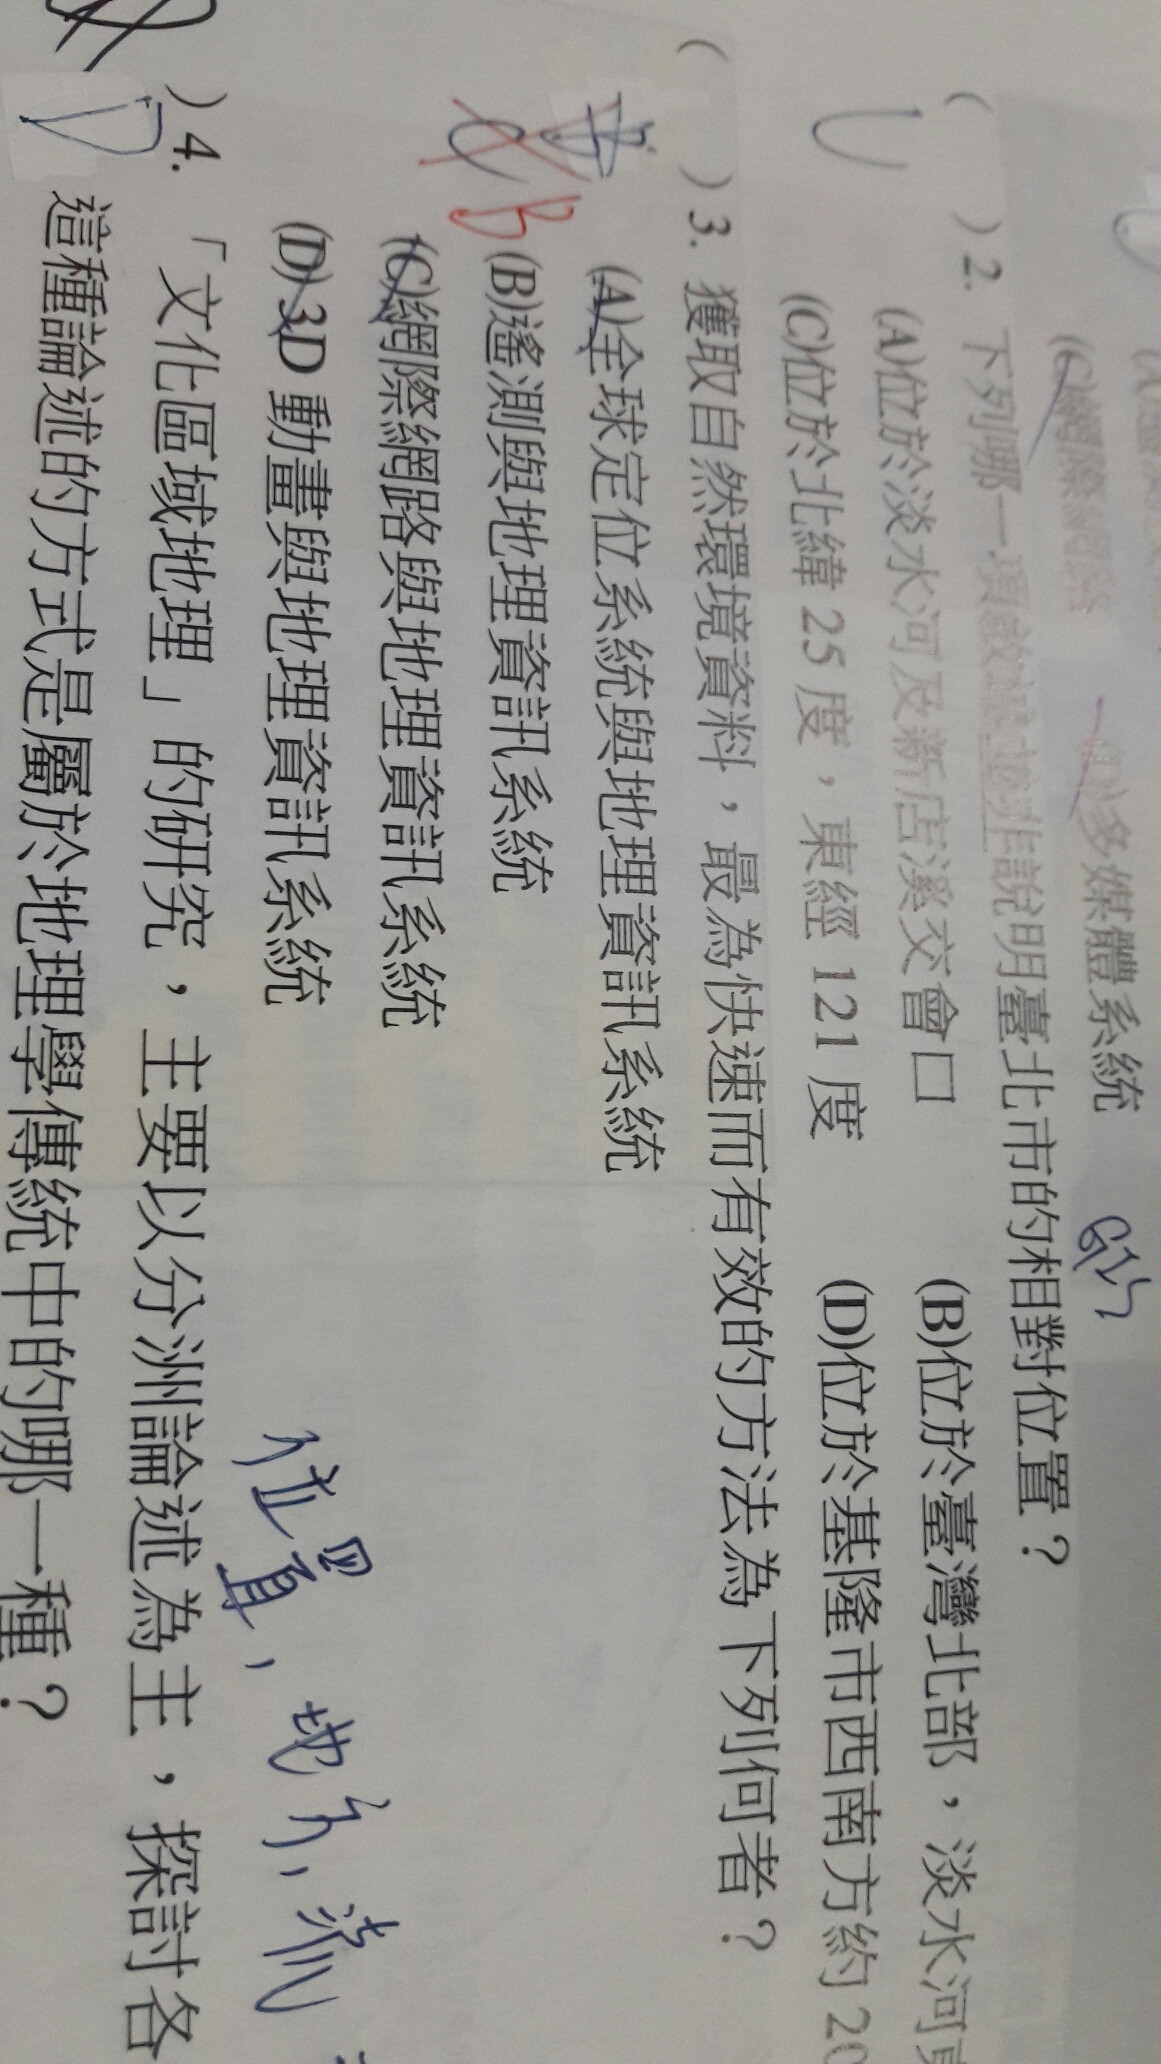 (D)多媒體系統
(C)網際網路
( )2. 下列哪一項敘述並非說明臺北市的相對位置？
(A)位於淡水河及新店溪交會口 (B)位於臺灣北部，淡水河
(C)位於北緯 25 度，東經 121 度 (D)位於基隆市西南方約 20
( )3. 獲取自然環境資料，最為快速而有效的方法為下列何者？
(A)全球定位系統與地理資訊系統
B
(B)遙測與地理資訊系統
(C)網際網路與地理資訊系統
(D)3D 動畫與地理資訊系統
位置，地
D
)4. 「文化區域地理」的研究，主要以分洲論述為主，探討各
這種論述的方式是屬於地理學傳統中的哪一種？